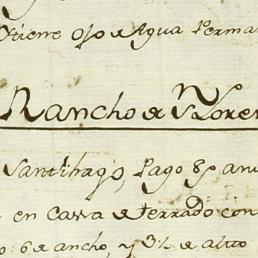 tiene Ojo de Agua Perma
Rancho de N Loren
Santihago, Pago 8 p anu
en Cassa de terrado con
o: 6 de ancho, y 3½ de alto